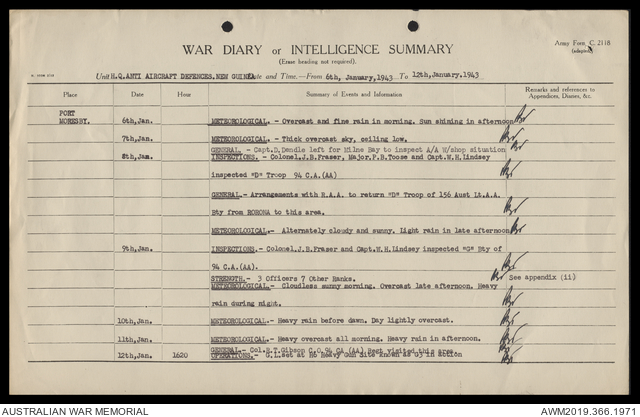 WAR DIARY or INTELLIGENCE SUMMARY
(Erase heading not required).
Army Form C. 2118
(adapted)
Unit H.Q. ANTI AIRCRAFT DEFENCES. NEW GUINEA Date and Time.—From 6th, January, 1943 To 12th, January. 1943
Place Date Hour Summary of Events and Information Remarks and references to
Appendices, Diaries, &c.
PORT
MORESBY. 6th, Jan. METEOROLOGICAL. - Overcast and fine rain in morning. Sun shining in afternoon
7th, Jan. METEOROLOGICAL. - Thick overcast sky, ceiling low.
GENERAL - Capt. D. Dendle left for Milne Bay to inspect A/A W/shop situation
8th, Jan. INSPECTIONS. - Colonel. J.B. Fraser, Major. P.B. Toose and Capt. W.H. Lindsey
inspected "D" Troop 94 C.A.(AA)
GENERAL. - Arrangements with R.A.A. to return "D" Troop of 156 Aust Lt.A.A.
Bty from RORONA to this area.
METEOROLOGICAL. - Alternately cloudy and sunny. Light rain in late afternoon
9th, Jan. INSPECTIONS. - Colonel. J.B. Fraser and Capt. W.H. Lindsey inspected "G" Bty of
94 C.A.(AA).
STRENGTH. - 3 Officers 7 Other Ranks. See appendix (ii)
METEOROLOGICAL. - Cloudless sunny morning. Overcast late afternoon. Heavy
rain during night.
10th, Jan. METEOROLOGICAL. - Heavy rain before dawn. Day lightly overcast.
11th, Jan. METEOROLOGICAL. - Heavy overcast all morning. Heavy rain in afternoon.
GENERAL. - Col. H.T. Gibson C.O. 94 CA (AA) Regt visited this area
12th, Jan. 1620 OPERATIONS. - G.L. set at H6 Heavy Gun Site known as G3 in action
AUSTRALIAN WAR MEMORIAL AWM2019.366.1971